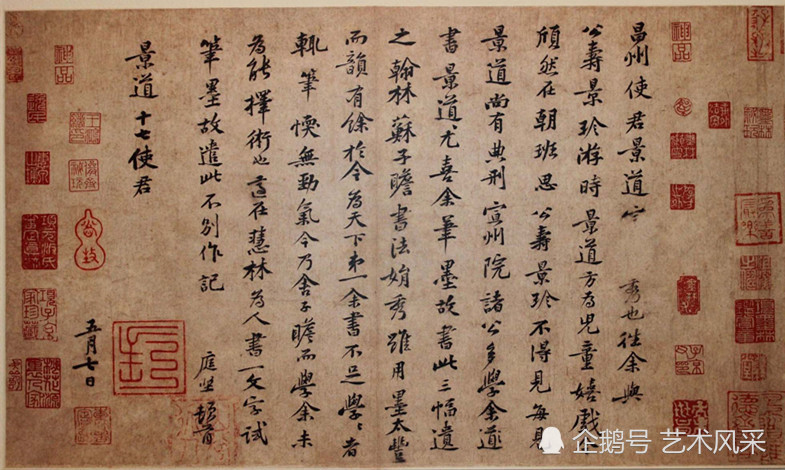 昌州使君景道宗 秀也往余與
公壽景珍游時景道方為兒童嬉戲今
頎然在朝班思 公壽景珍不得見每見
景道尚有典刑宣州院諸公多學余
書景道尤喜余筆墨故書此三幅遺
之翰林蘇子瞻書法娟秀雖用墨太豐
而韻有餘於今為天下第一余書不足學〻者
輒筆愞無勁氣今乃舍子瞻而學余未
為能擇術也適在慧林為人書一文字試
筆墨故遣此不別作記
庭堅頓首
景道十七使君
五月七日
神品
神品
企鹅号 艺术风采